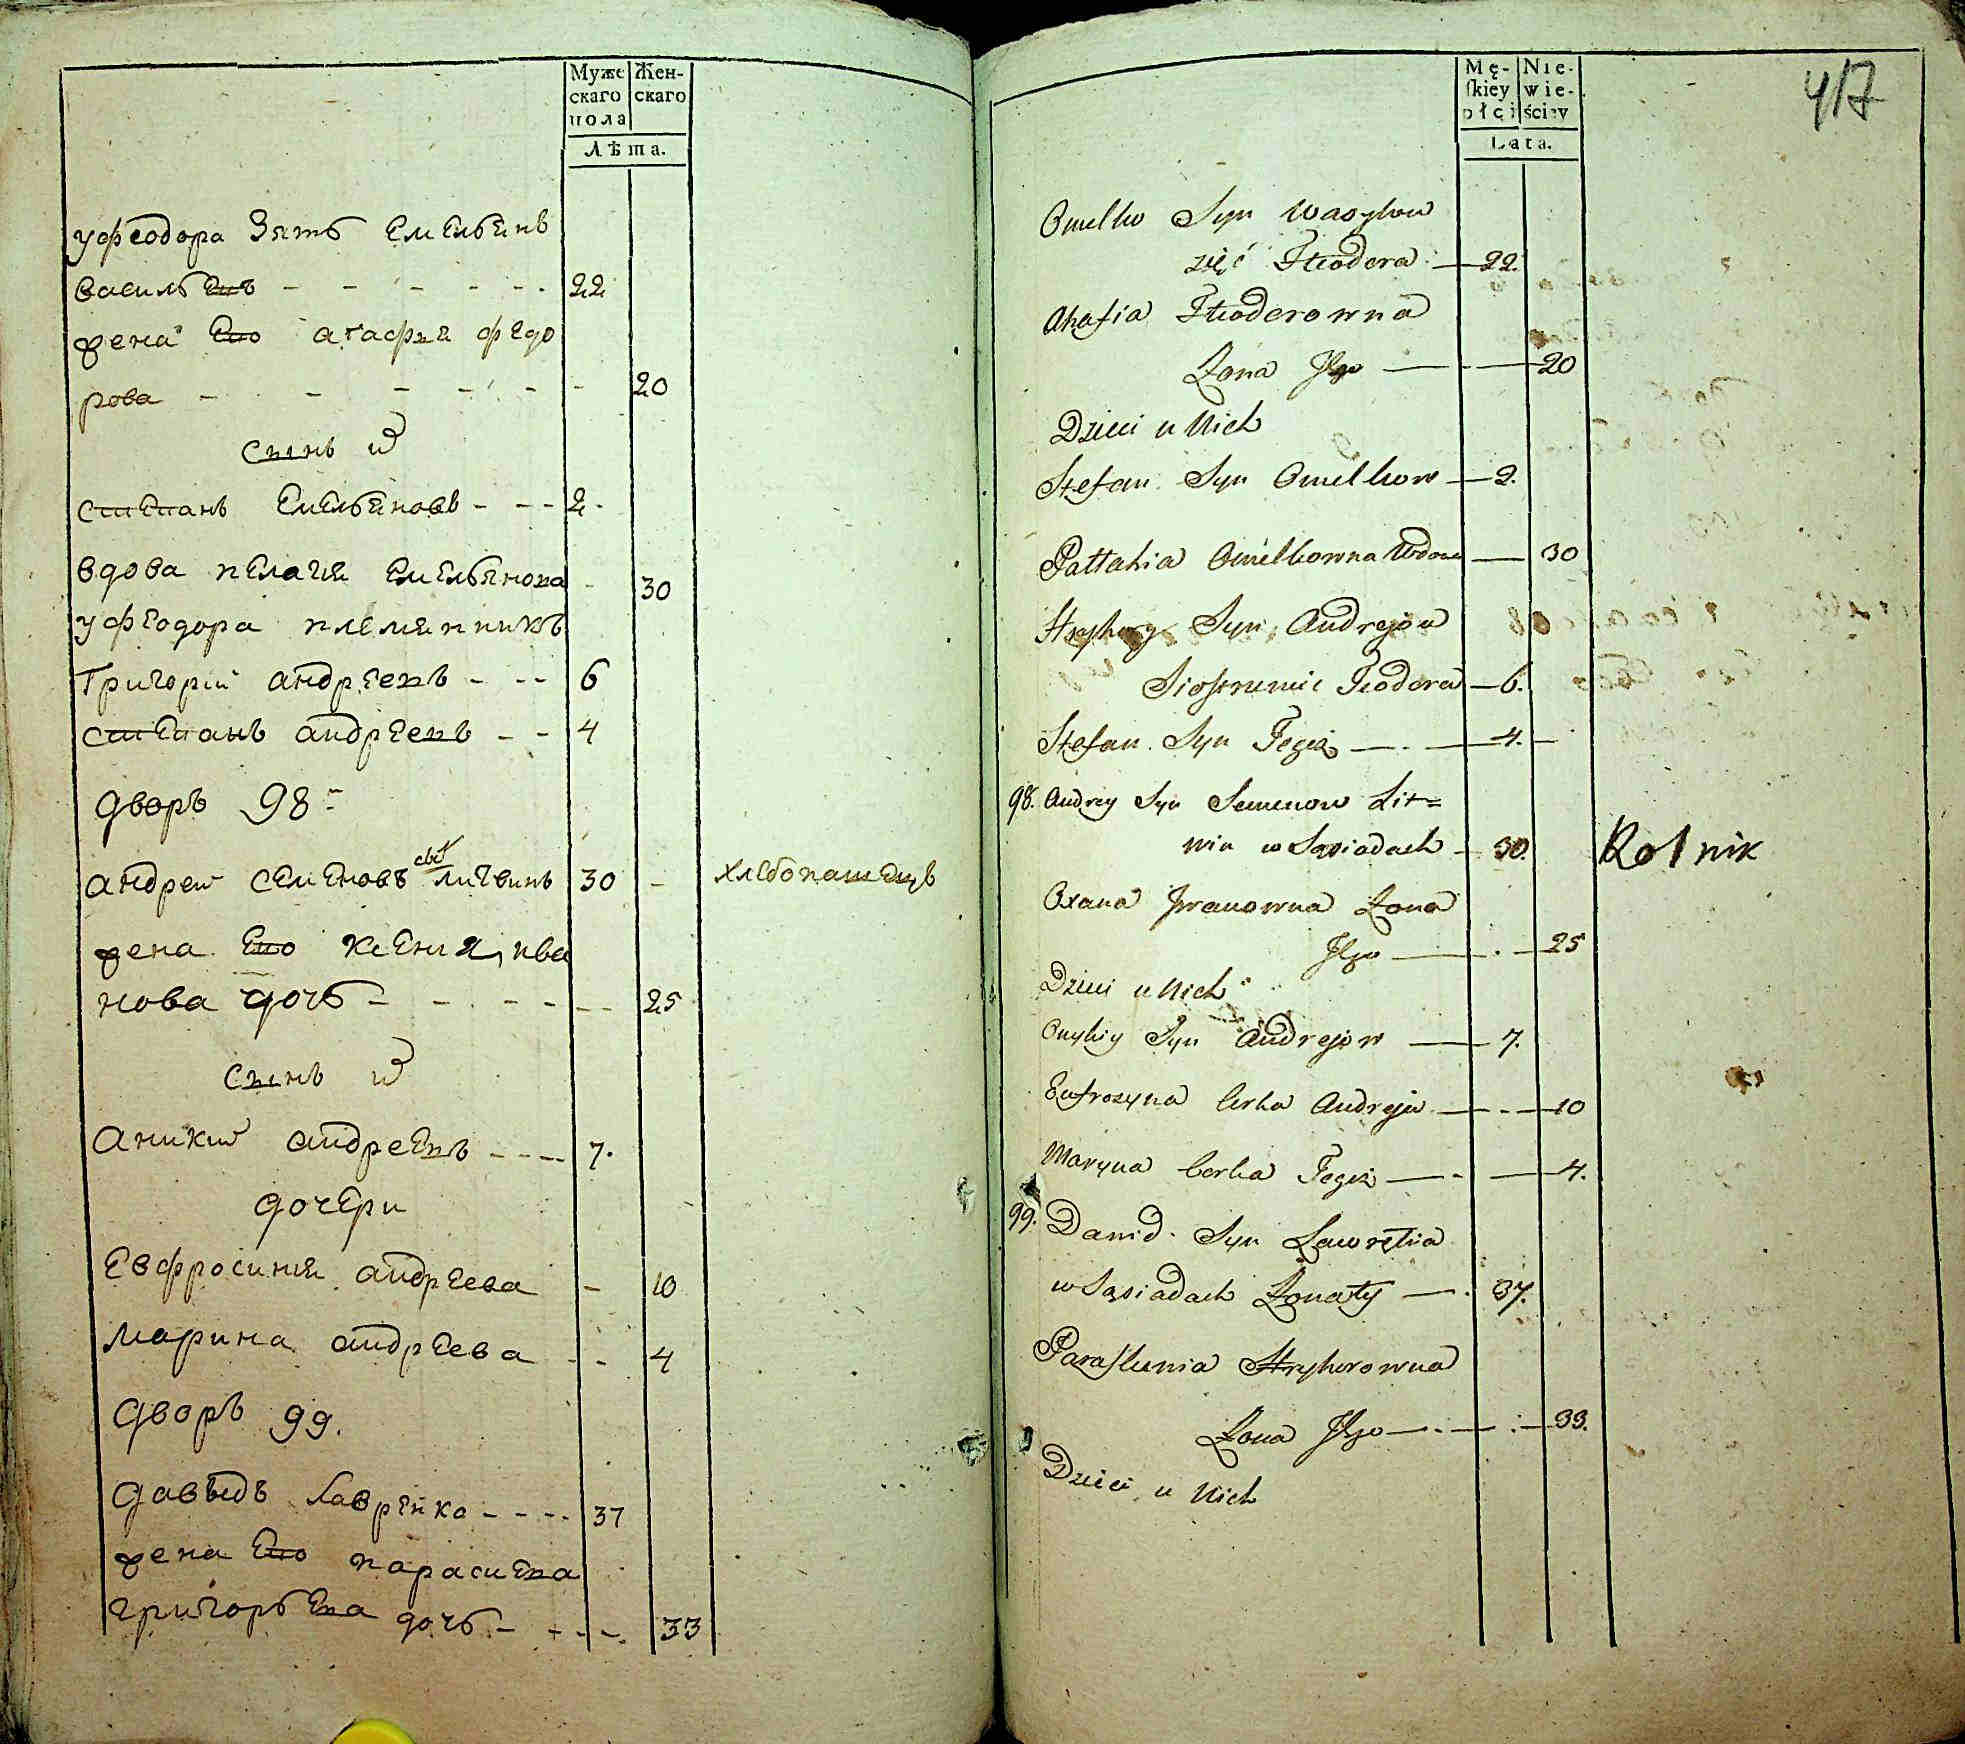 Муже
скаго
пола
Жен-
скаго
Лѣта.
у феодора зять емельянъ
васильевъ - - - - - - 22
жена его агафия федо
рова - - - - - - - 20
сынъ
степанъ Емельяновъ - - - 2
вдова пелагия емельянова - 30
у феодора племянникъ
Григорий андреевъ - - - 6
степанъ андреевъ - - 4
дворъ 98
андрей семеновъ литвинъ 30 - хлебопашецъ
жена его ксения ива
нова дочь - - - - - - 25
сынъ
аникий андреевъ - - - - 7.
дочери
Евфросиния андреева - 10
марина андреева - - 4
дворъ 99.
давыдъ лавренко - - - - 37
жена его парасиева
григорьева дочь - - - - 33
Mę-
ſkiey
płci
Nie-
wie-
ściey
Lata.
417
Omelko Syn Wasylow
zięć Fteodora 22.
Ahafia Fteodorowna
Zona Jego 20
Dzieci u Nich
Stefan Syn Omelkow 2.
Pałtahia Omelkowna Wdowa 30
Hryhory Syn Andrejow
Siostrzeniec Teodora 6.
Stefan Syn Tegoż 4.
98. Andrey Syn Semenow Lit=
win w Sąsiadach 30. Rolnik
Oxana Jwanowna Zona
Jego 25
Dzieci u Nich
Onykiy Syn Andrejow 7.
Eufrozyna Corka Andreja 10
Maryna Corka Tegoż 4.
99. Dawid Syn Lawrętia
w Sąsiadach Zonaty 37.
Paraſkewia Hryhorowna
Zona Jego 33.
Dzieci u Nich